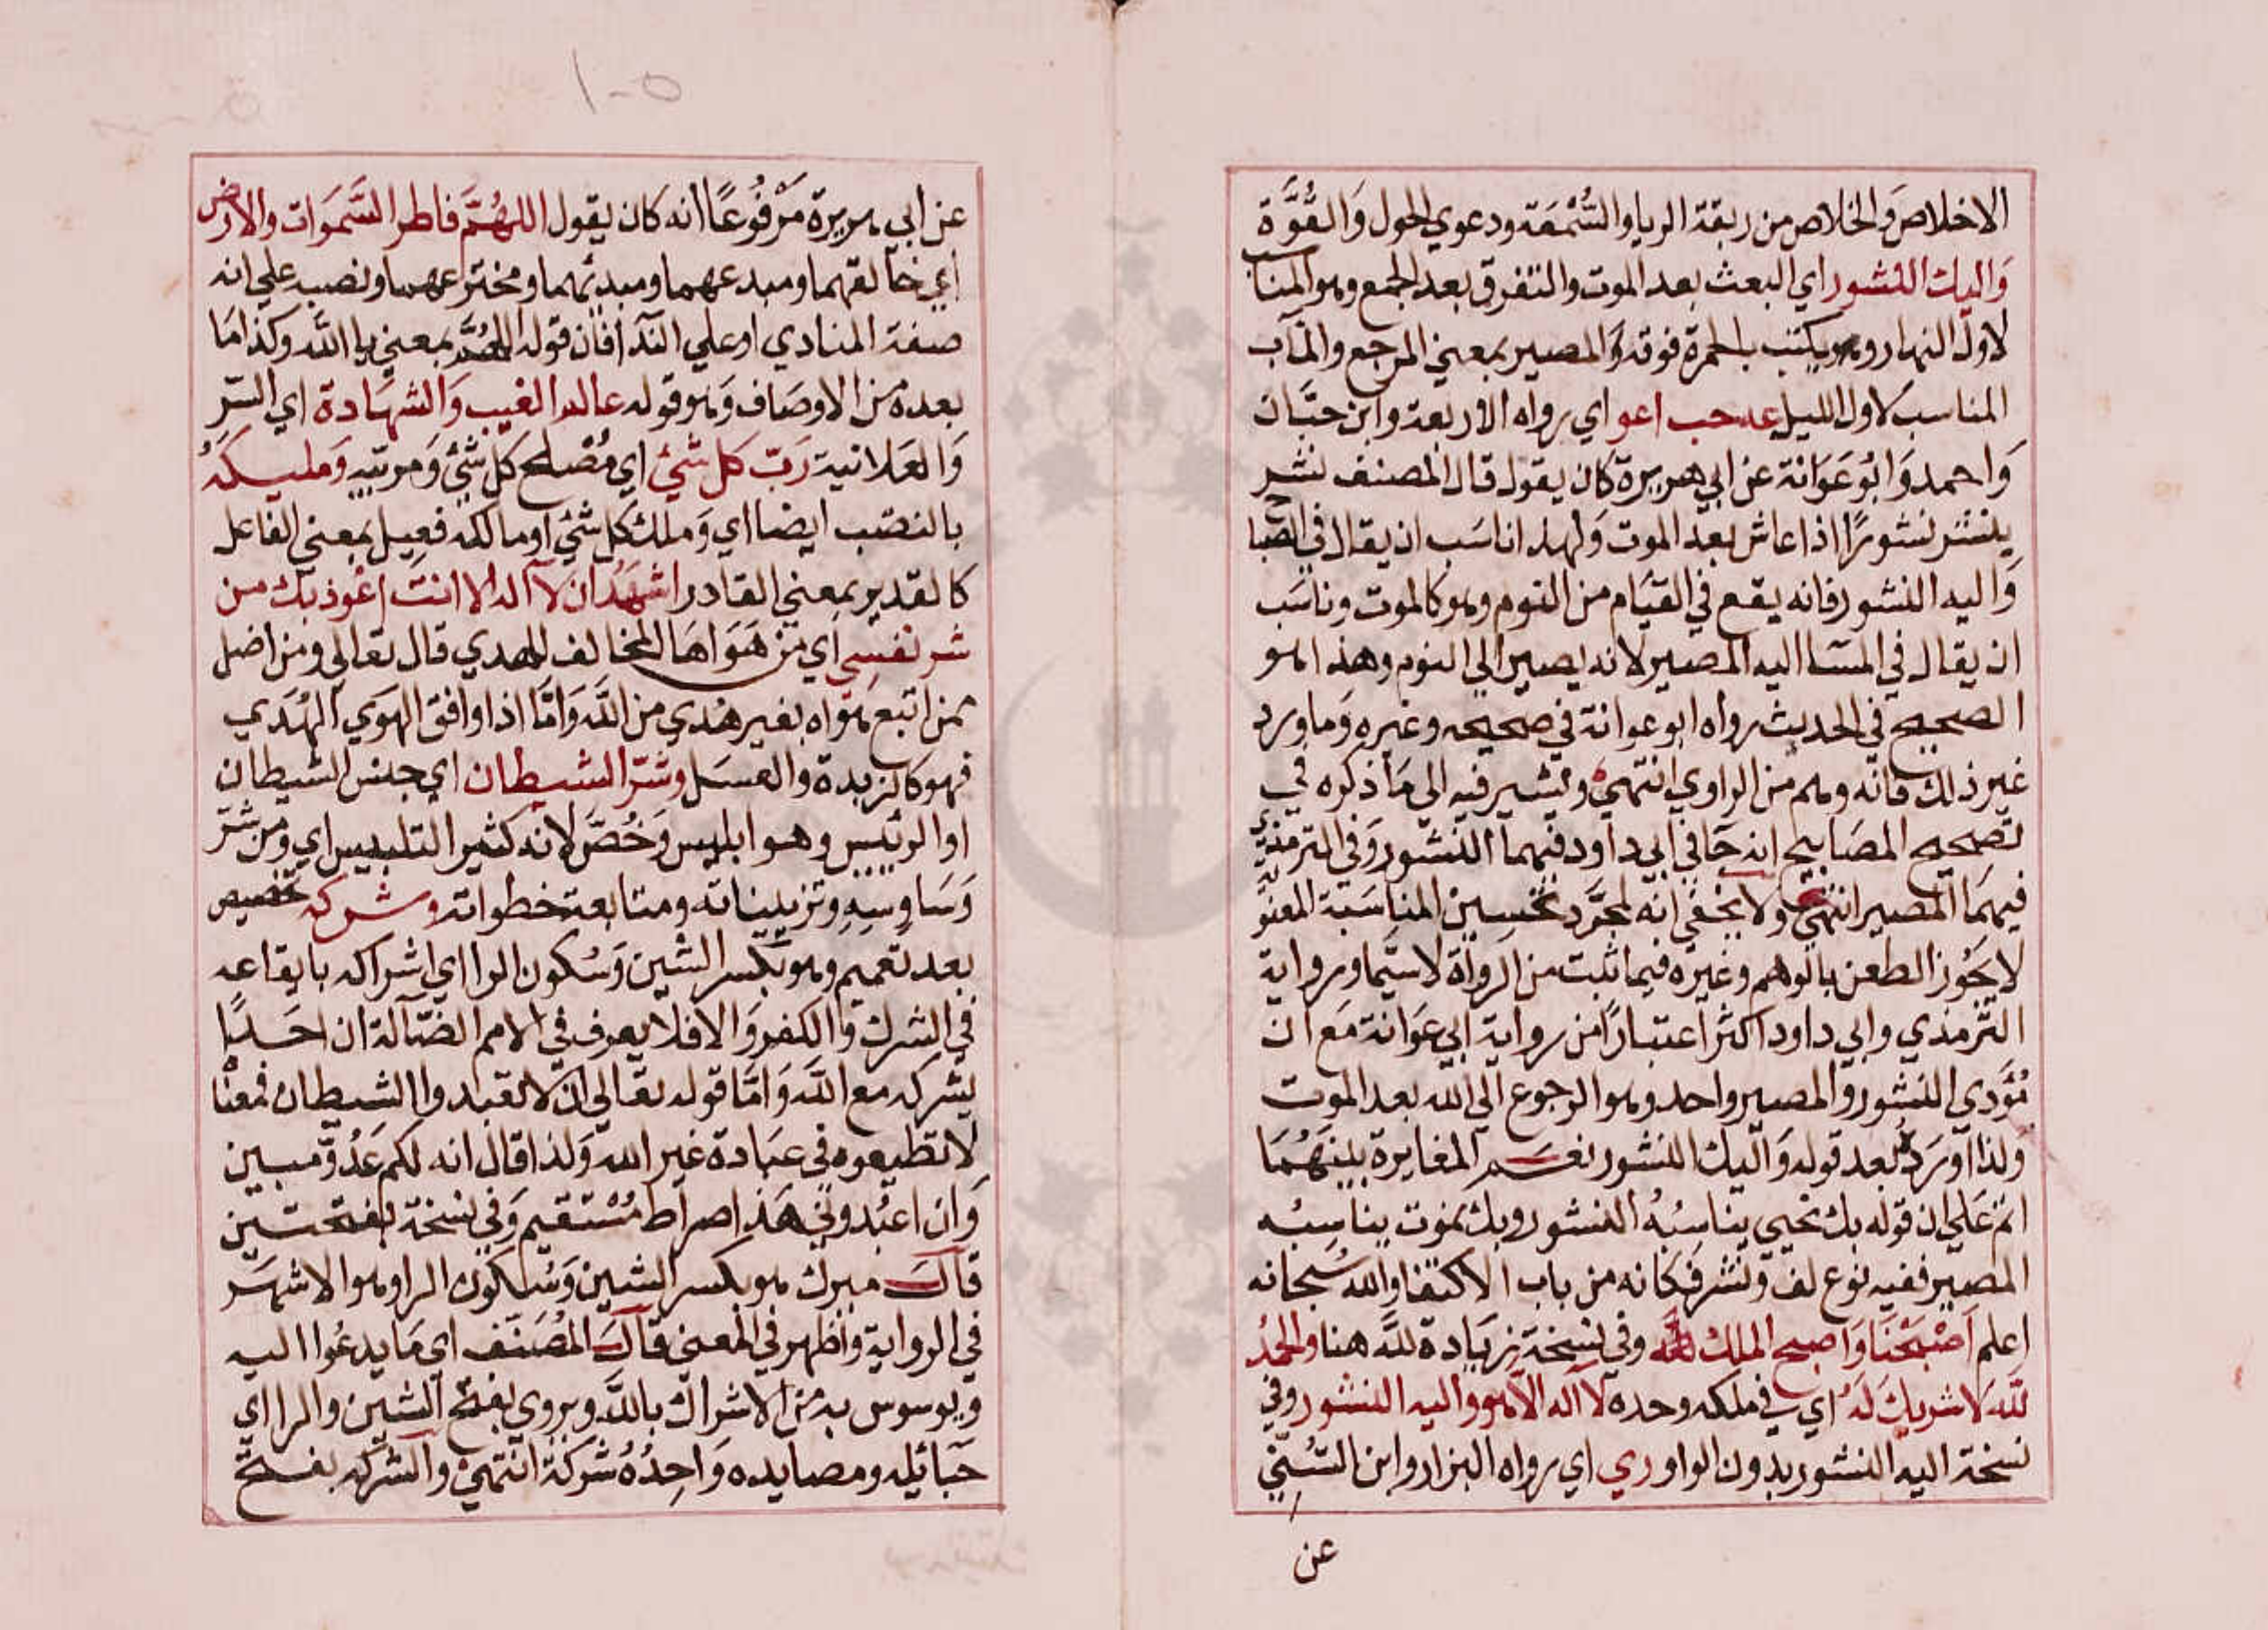 الاخلاص وَالخلاص من ربقة الريا والسُّمْعَة ودعوي الحول وَالقُوَّة
وَاليك النشور اي البعث بعد الموت والتفرق بعد الجمع وهو المناسب
لاول النهار وهو يكتب بالحمرة فوقه وَالمصير بمعني المرجع والمآب
المناسب لاول الليل عه حب اعو اي رواه الاربعة وابن حبَّان
وَاحمد وَابُو عَوَانة عن ابي هريرة كان يقول قال المصنف نشر
ينشر نشورًا اذا عاش بعد الموت وَلهذا ناسَب ان يقال في الصباح
وَاليه النشور فانه يقع في القيَام من النوم وهو كالموت وناسَب
ان يقال في المسَا اليه المصير لانه يصير الي النوم وهذا هو
الصحيح في الحديث رواه ابو عوانة في صحيحه وغيره وَما ورد
غير ذلك فانه وهم من الراوي انتهيٰ ويشير فيه الي مَا ذكره في
تصحيح المصَابيح انه جَا في ابي داود فيهما النشور وَفي الترمذي
فيهمَا المصير انتهيٰ ولا يخفي انه لمجَرَّد تحسين المناسَبة المعنويَّة
لا يَجُوز الطعن بالوهم وغيره فيما ثبت من الرواة لا سيَّما ورواية
الترمذي وابي داود اكثر اعتبارًا من رواية ابي عَوَانة مَع ان
مُؤَدي النشور والمصير واحد وهو الرجوع الي الله بعد الموت
وَلذا اورَدهُ بعد قوله وَاليك النشور نعَم المغايرة بينهُمَا
اتم عَلي ان قوله بك نحيي يناسبُهُ النشور وبك نموت يناسِبُه
المصير ففيه نوع لف وَنشر فكانه من باب الاكتفا والله سُبحانه
اعلم اَصْبَحْنَا وَاَصبح الملك لله وفي نسخة زيَادة للهِ هنا والحمدُ
للهِ لا شريكَ لهُ اي في ملكه وحده لا اله الا هو واليه النشور وفي
نسخة اليه النشور بدون الواو ري اي رواه البزار وابن السُنِّي
عن
١٠٥
عن ابي هريرة مَرْفُوعًا انه كان يقول اللهُمَّ فاطر السَّموَات والارض
اي خالقهما ومبدعهما ومبديهما ومخترعهما ونصبه علي انه
صفة المنادي او علي الندآ فان قوله اللهُمَّ بمعني يا الله وكذا مَا
بعده من الاوصَاف وَهو قوله عالم الغيب وَالشهَادة اي السّر
وَالعَلانية رَبّ كل شَئ اي مُصْلح كل شَئ وَمربيه وَمليكَهُ
بالنصَب ايضا اي وَملك كل شَئ او مالكه فعِيل بمعني الفاعل
كالقدير بمعني القادر اشهَدُ ان لا اله الا انتَ اعُوذ بك من
شر نفسِي اي من هَوَاهَا المخالف للهدي قال تعَالي ومن اضل
ممن اتبع هَواه بغير هدي من الله وَامَّا اذا وافق الهَوَي الهُدَي
فهو كالزبدة والعسَل وشرّ الشيطان اي جنس الشيطان
او الرئيس وهو ابليس وَخُصَّ لانه كثير التلبيس اي وَمن شرّ
وَسَاوِسِهِ وتزييناته ومتابعة خطواته وشركه تخصيص
بعد تعميم وهو بكسر الشين وَسُكون الرا اي اشراكه بايقاعه
في الشرك وَالكفر وَالا فلا يعرف في الامم الضآلة ان احَدًا
يشركه مع الله وَامَّا قوله تعَالي ان لا تعبدوا الشيطان فمعنَا
لا تطيعوه في عبَادة غير الله وَلذا قال انه لكم عَدُوّ مبين
وَان اعبُدوني هَذا صراط مُسْتقيم وَفي نسخة بفتحتين
قالَ ميرك هو بكسر الشين وَسُكون الرا وهو الاشهَر
في الرواية واظهر في المعني قالَ المُصَنف اي مَا يدعُوا اليه
ويوسوس به من الاشراك بالله ويروي بفتح الشين والرا اي
حَبَائله ومصايده وَاحِدُهُ شركة انتهيٰ والشركه بفتح